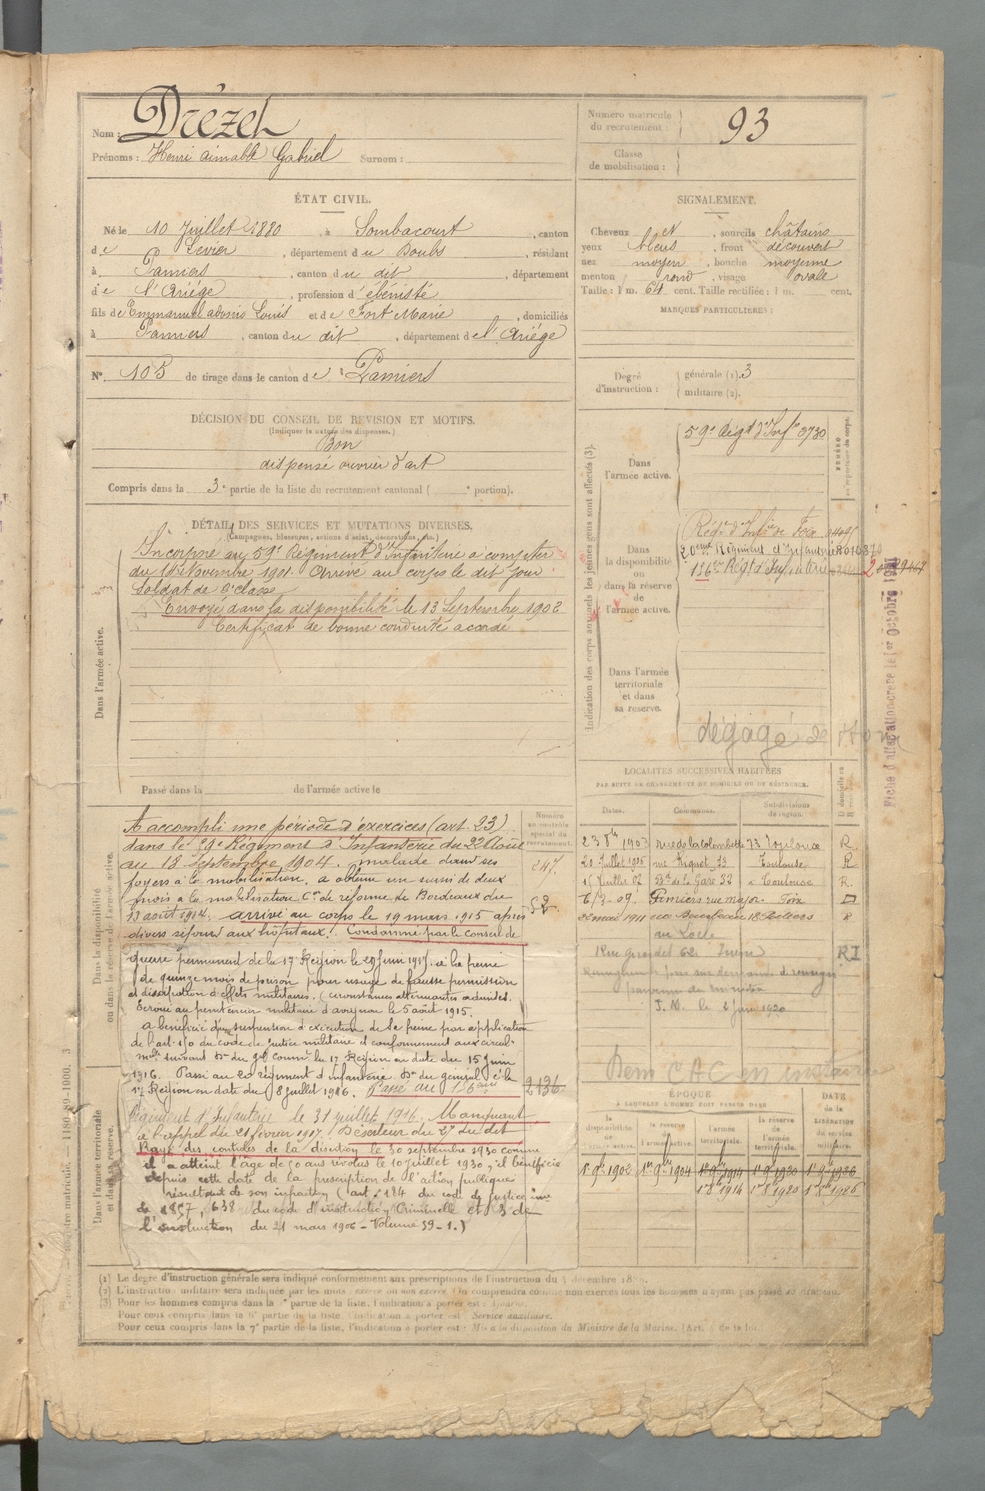 Nom : Drézet
Prénoms : Henri aimable Gabriel Surnom :
Numéro matricule du recrutement : 93
Classe de mobilisation :
ÉTAT CIVIL.
Né le 10 Juillet 1880, à Sombacourt, canton
de Levier, département du Doubs, résidant
à Pamiers, canton du dit, département
de l'Ariège, profession d'ébéniste
fils de Emmanuel adonis Louis et de Fort Marie, domiciliés
à Pamiers, canton du dit, département de l'Ariège
N° 105 de tirage dans le canton de Pamiers
SIGNALEMENT.
Cheveux et, sourcils châtains
yeux bleus, front découvert
nez moyen, bouche moyenne
menton rond, visage ovale
Taille : 1 m. 64 cent. Taille rectifiée : 1 m. cent.
MARQUES PARTICULIÈRES :
Degré d'instruction : générale (1). 3
militaire (2).
DÉCISION DU CONSEIL DE REVISION ET MOTIFS.
(Indiquer la nature des dispenses.)
Bon
dispensé ouvrier d'art
Compris dans la 3e partie de la liste du recrutement cantonal ( e portion).
DÉTAIL DES SERVICES ET MUTATIONS DIVERSES.
(Campagnes, blessures, actions d'éclat, décorations, etc.)
Dans l'armée active.
Incorporé au 59e Régiment d'Infanterie à compter
du 14 Novembre 1901. Arrivé au corps le dit jour
Soldat de 2e classe
Envoyé dans la disponibilité le 13 Septembre 1902
Certificat de bonne conduite accordé
Passé dans la de l'armée active le
Indication des corps auxquels les jeunes gens sont affectés (3).
Dans l'armée active.
59e Régt d'Infie 3730
Dans la disponibilité ou dans la réserve de l'armée active.
Régt d'Infie de Foix
20eme Régiment d'Infanterie
136e Régt d'Infanterie
Dans l'armée territoriale et dans sa réserve.
dégagé de
Fiche d'affectation créée le 1er Octobre
Dans la disponibilité ou dans la réserve de l'armée active.
Numéro au contrôle spécial du recrutement.
A accompli une période d'exercices (art. 23)
dans le 59e Régiment d'Infanterie du 22 Août
au 18 septembre 1904. malade dans ses
foyers à la mobilisation, a obtenu un sursis de deux
mois à la mobilisation Con de réforme de Bordeaux du
13 août 1914. arrivé au corps le 19 mars 1915 après
divers séjours aux hôpitaux. Condamné par le conseil de
guerre permanent de la 17e Région le 29 Juin 1915, à la peine
de quinze mois de prison pour usage de fausse permission
et dissipation d'effets militaires. (circonstances atténuantes admises.
Ecroué au pénitencier militaire d'avignon le 5 août 1915.
a bénéficié d'une suspension d'exécution de se peine par application
de l'art. 150 du code de justice militaire et conformément aux circul.
mlle suivant Don du Gal Commt la 17 Région en date du 15 Juin
1916. Passé au 20 régiment d'infanterie Don du général Ct la
17 Région en date du 8 Juillet 1916. Passé au 136eme
Régiment d'Infanterie le 31 juillet 1916. Manquant
à l'appel du 21 février 1917. Déserteur du 27 du dit
Rayé des contrôles de la désertion le 30 septembre 1930 comme
il a atteint l'âge de 50 ans révolus le 10 juillet 1930, il bénéficie
depuis cette date de la prescription de l'action publique
résultant de son infraction (art. 184 du code de justice mre
de 1857, 638 du code d'instruction Criminelle et 3 de
l'instruction du 21 mars 1906 - Volume 59 - 1.)
247.
52
2136
Dans l'armée territoriale et dans sa réserve.
LOCALITÉS SUCCESSIVES HABITÉES
PAR SUITE DE CHANGEMENTS DE DOMICILE OU DE RÉSIDENCE.
Dates. Communes. Subdivisions de région.
23 8bre 1903 rue de la colombette 73 Toulouse R
20 Juillet 1905 rue Riquet 23 Toulouse R
15 Juillet 07 Bd de la Gare 32 Toulouse R.
6/7-09. Pamiers rue major. Foix D
26 mai 1911 18 Béziers R
au Locle
Rue girardet 62 Suisse RI
S. M. le 2 Juin 1920
Bem CAC en instance
ÉPOQUE
À LAQUELLE L'HOMME DOIT PASSER DANS
la disponibilité de l'armée active. la réserve de l'armée active. l'armée territoriale. la réserve de l'armée territoriale. DATE de la LIBÉRATION du service militaire.
1er 9bre 1902 1er 9bre 1904 1er 9bre 1914 1er 9bre 1920 1er 9bre 1926
1er 8bre 1914 1er 8bre 1920 1er 8bre 1926
(1) Le degré d'instruction générale sera indiqué conformément aux prescriptions de l'instruction du 4 décembre
(2) L'instruction militaire sera indiquée par les mots : exercé ou non exercé. On comprendra comme non exercés tous les hommes n'ayant pas passé au drapeau.
(3) Pour les hommes compris dans la partie de la liste, l'indication à porter est : Ajourné.
Pour ceux compris dans la 6e partie de la liste l'indication à porter est : Service auxiliaire.
Pour ceux compris dans la 7e partie de la liste, l'indication à porter est : Mis à la disposition du Ministre de la Marine.